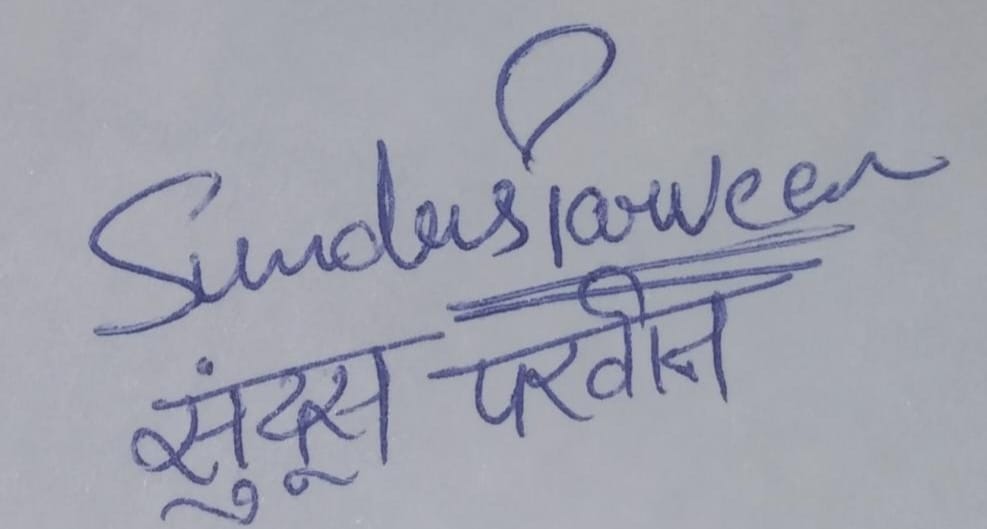 Sundus Parween
सुंदूस परवीन